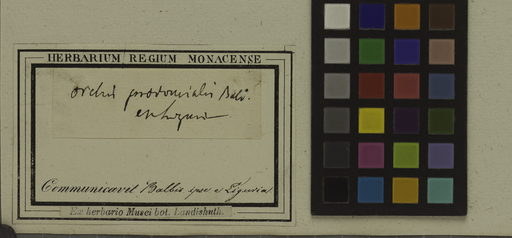 HERBARIUM REGIUM MONACENSE
orchis Balb.
Communicavit Balbis ipse e Liguria
Ex herbario Musei bot. Landishuth.